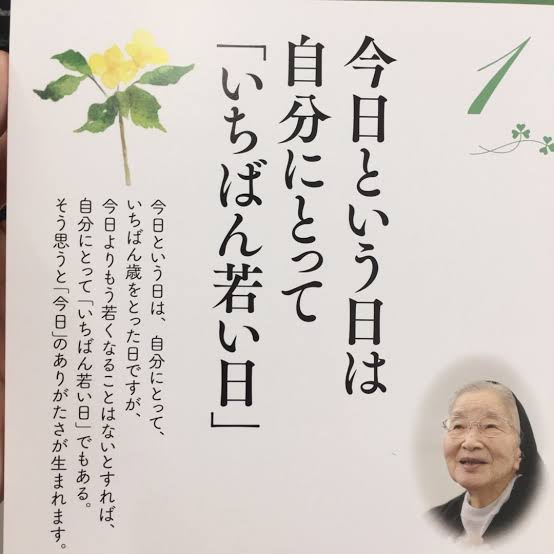 1
今日という日は
自分にとって
「いちばん若い日」
今日という日は、自分にとって、
いちばん歳をとった日ですが、
今日よりもう若くなることはないとすれば、
自分にとって「いちばん若い日」でもある。
そう思うと「今日」のありがたさが生まれます。